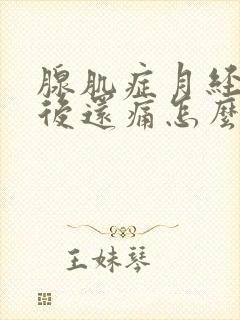 腺肌症月經
後還痛怎麼
王妹琴